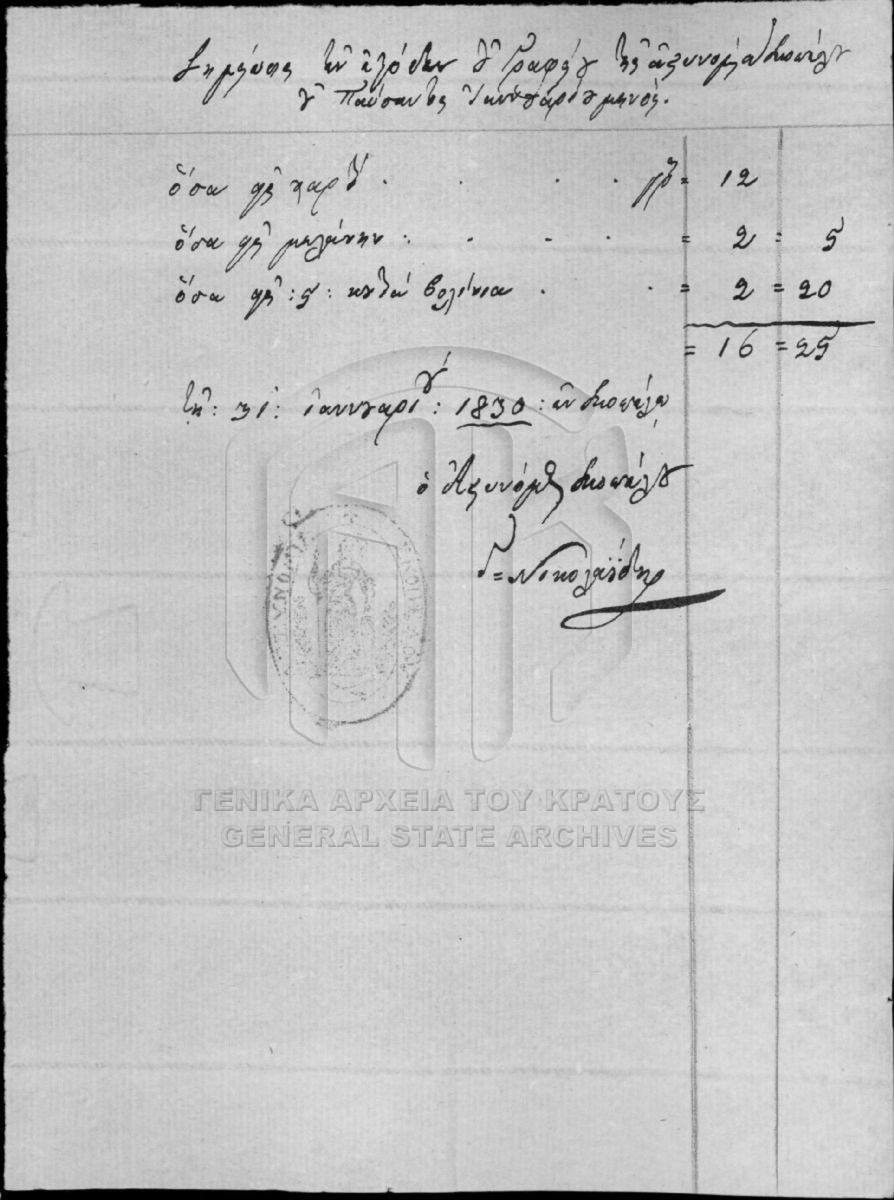 Σημείωσις τῶν ἐξόδων τοῦ Γραφείου τῆς ἀστυνομίας Σκοπέλου
τοῦ παύσαντος Ἰαννουαρίου μηνός.
ὅσα διὰ χαρτὶ . . . . γρ = 12
ὅσα διὰ μελάνην : . . . = 2 = 5
ὅσα διὰ : 5 : κονδύλια . . = 2 = 20
= 16 = 25
τῇ : 31 : ἰαννουαρίου : 1830 : ἐν Σκοπέλῳ
ὁ Ἀστυνόμος Σκοπέλου
Νικολαΐδης
ΓΕΝΙΚΑ ΑΡΧΕΙΑ ΤΟΥ ΚΡΑΤΟΥΣ
GENERAL STATE ARCHIVES